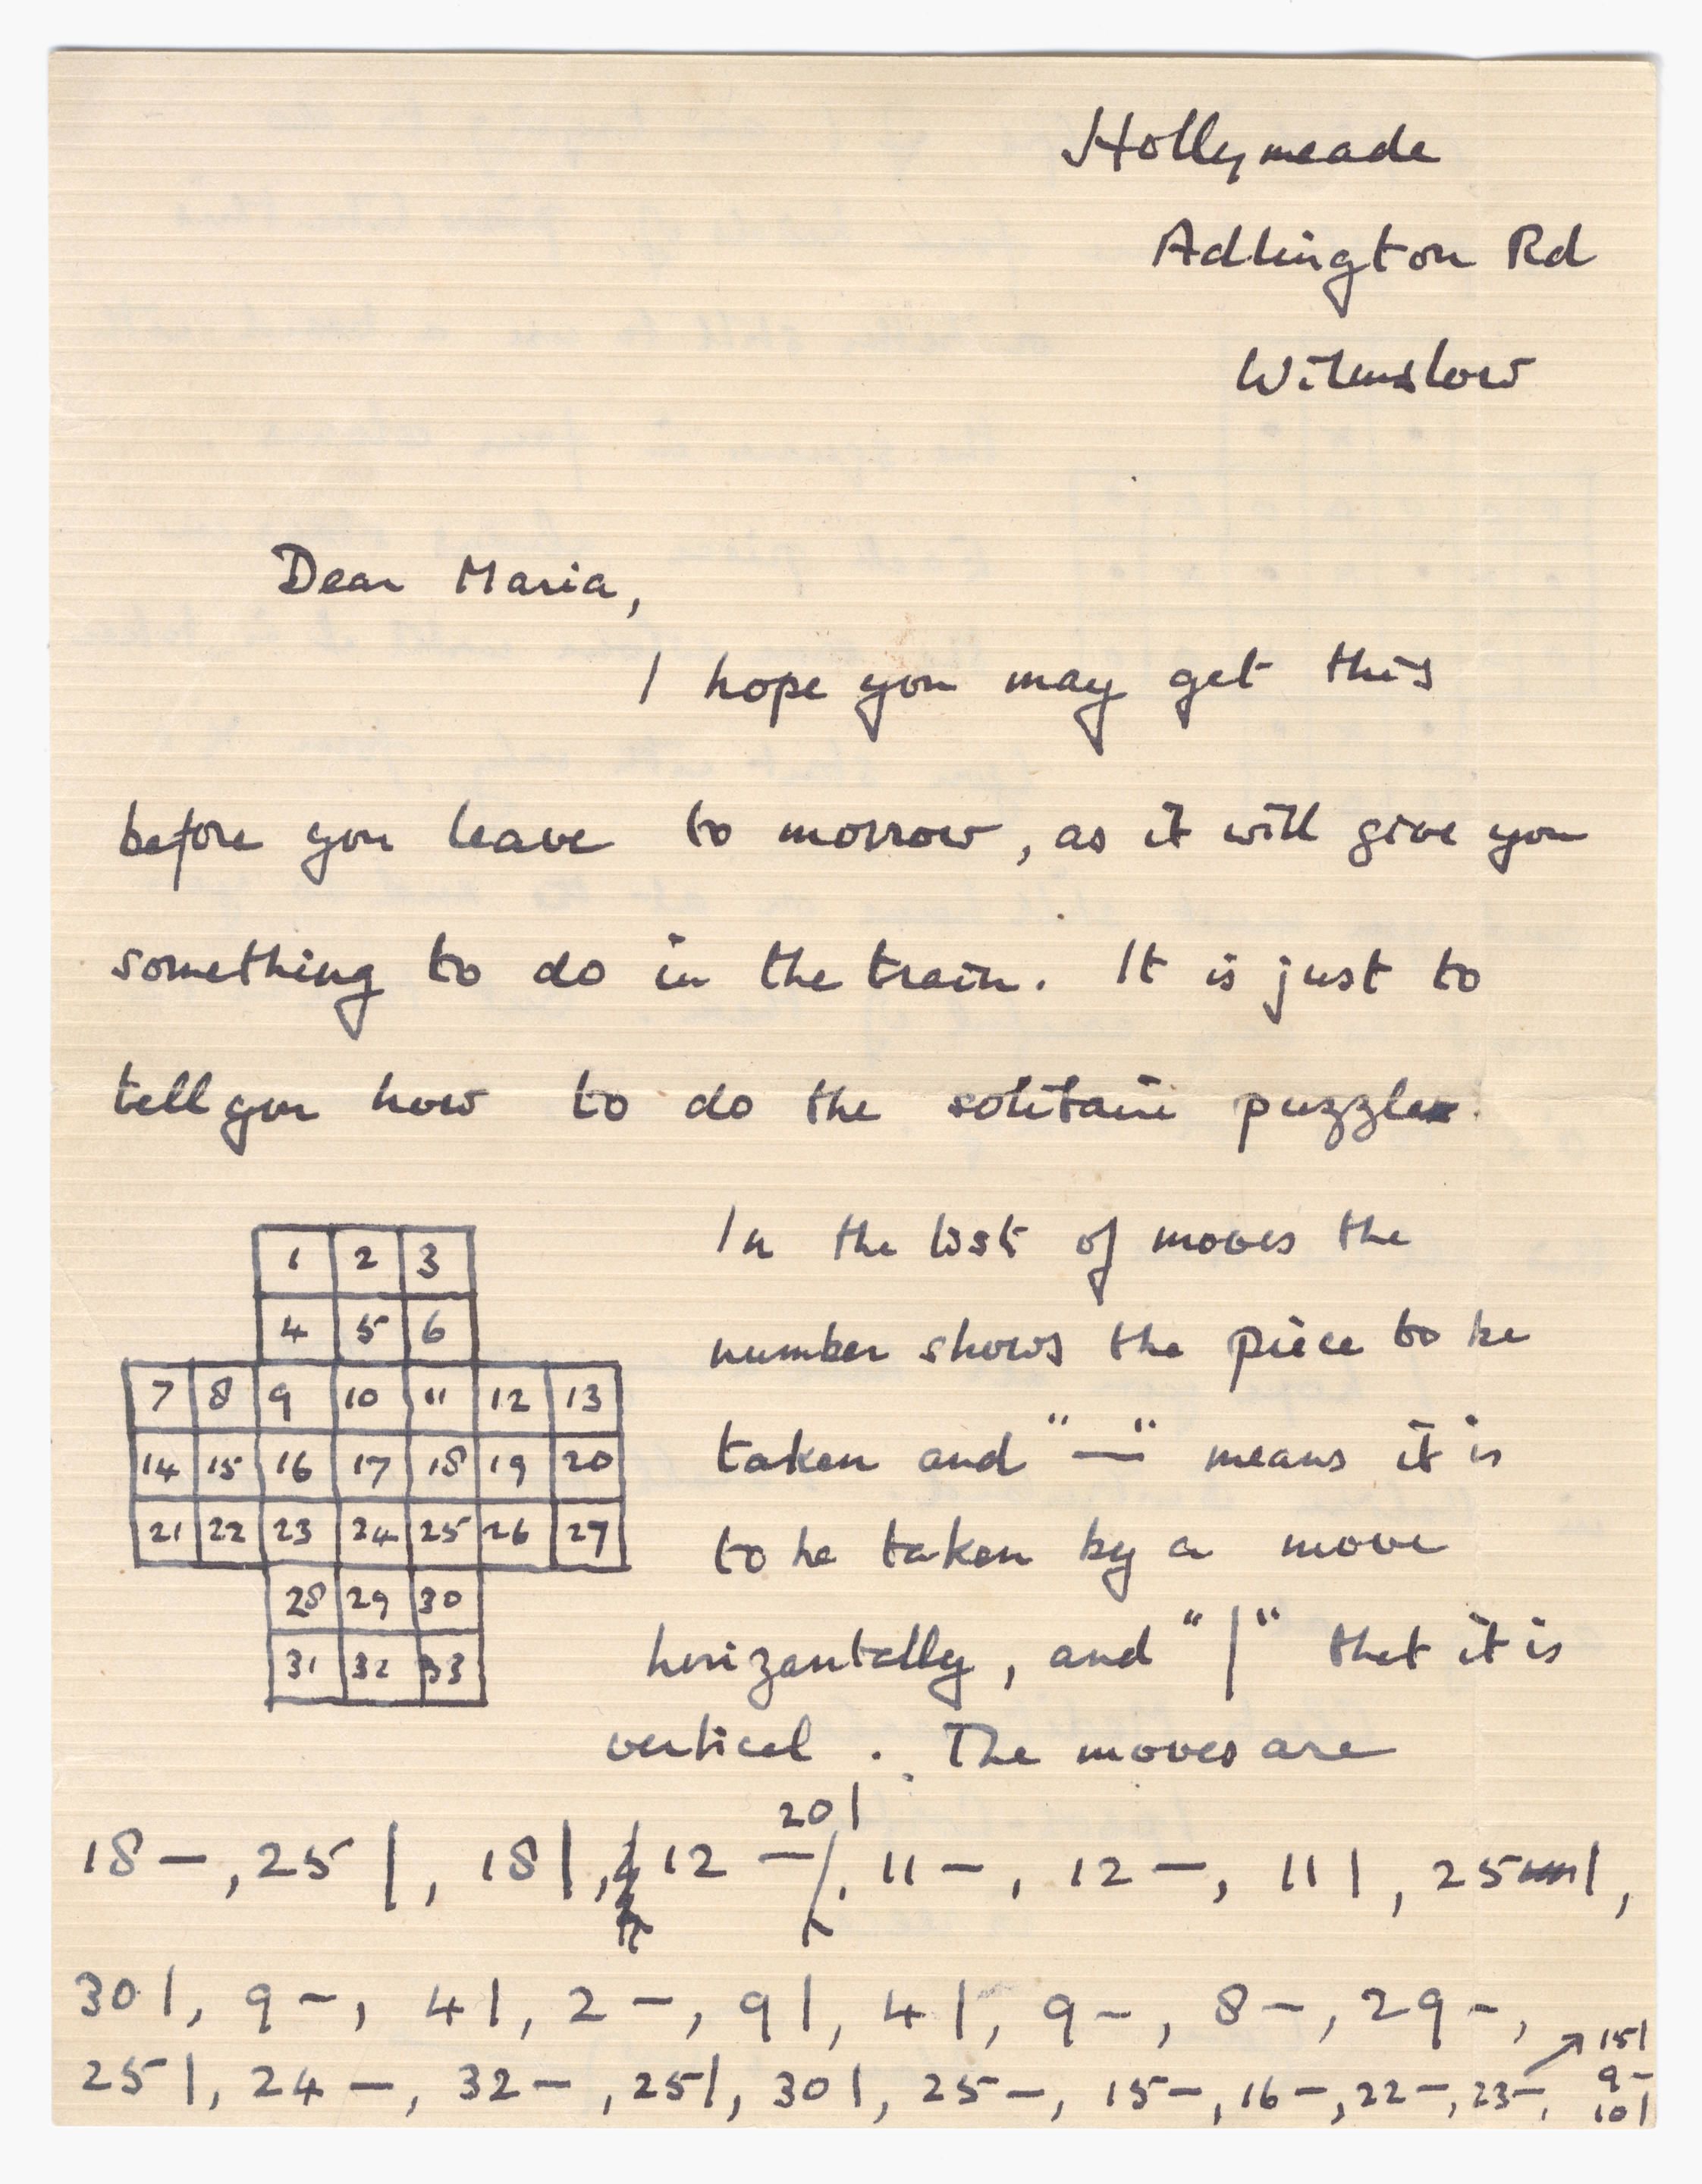 Hollymeade
Adlington Rd
Wilmslow
Dear Maria,
I hope you may get this
before you leave to morrow, as it will give you
something to do in the train. It is just to
tell you how to do the solitaire puzzle.
1 2 3
4 5 6
7 8 9 10 11 12 13
14 15 16 17 18 19 20
21 22 23 24 25 26 27
28 29 30
31 32 33
In the list of moves the
number shows the piece to be
taken and "—" means it is
to be taken by a move
horizantally, and "|" that it is
vertical. The moves are
20|
18 –, 25 |, 18 |, 12 –, 11 –, 12 –, 11 |, 25 |,
30 |, 9 –, 4 |, 2 –, 9 |, 4 |, 9 –, 8 –, 29 –,
25 |, 24 –, 32 –, 25 |, 30 |, 25 –, 15 –, 16 –, 22 –, 23 –,
↗ 15 |
9 –
10 |